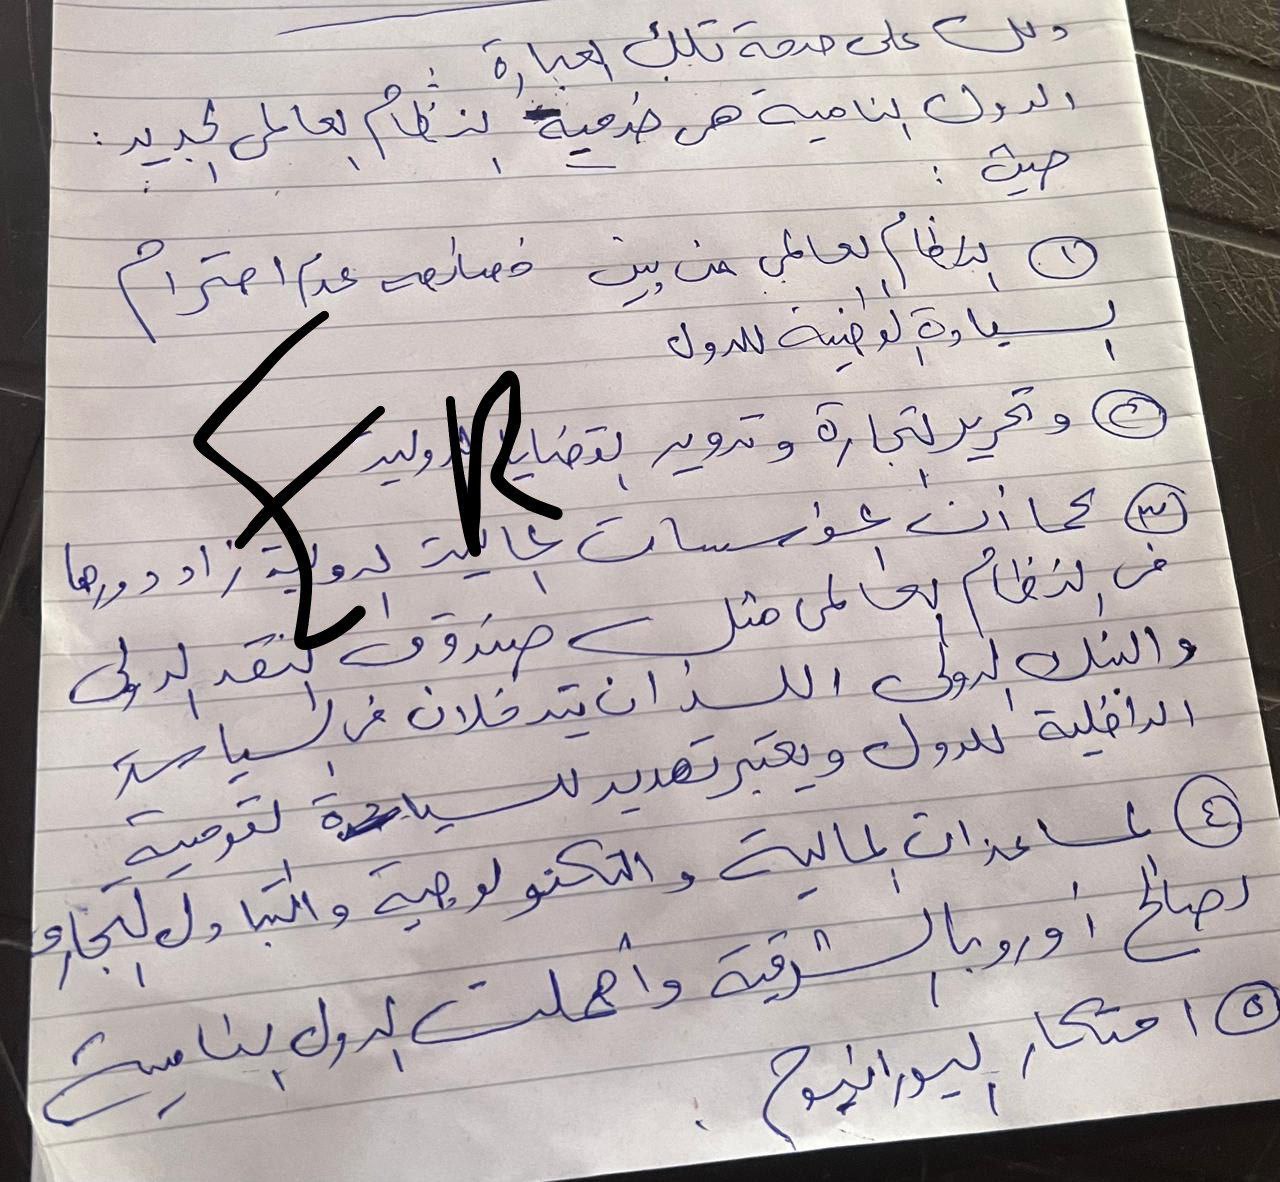 دلل على صحة تلك العبارة
الدول النامية هى ضحية النظام العالمى الجديد :
حيث :
١ النظام العالمى من بين خصائصه عدم احترام
السيادة الوطنية للدول
٢ وتحرير التجارة وتدويل القضايا الدولية
٣ كما أن المؤسسات المالية الدولية زاد دورها
فى النظام العالمى مثل صندوق النقد الدولى
والبنك الدولى اللذان يتدخلان فى السياسة
الداخلية للدول ويعتبر تهديد للسيادة القومية
٤ المساعدات المالية والتكنولوجية والتبادل التجارى
لصالح أوروبا الشرقية وأهملت الدول النامية
٥ احتكار اليورانيوم .